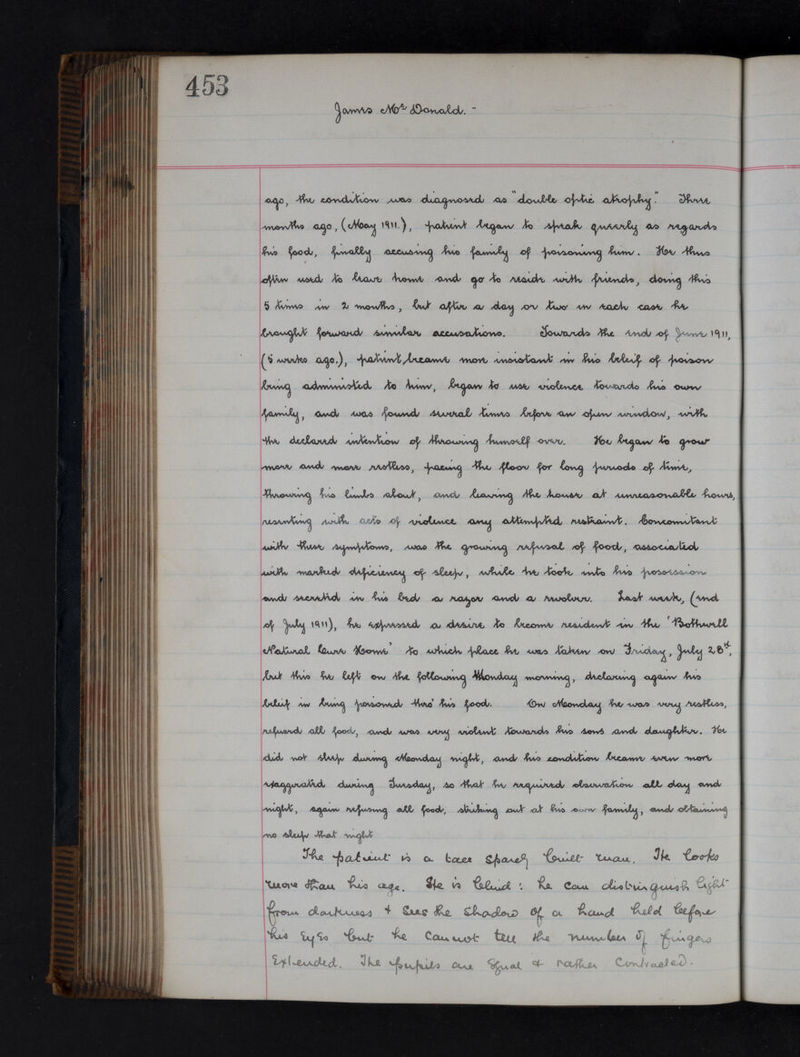 453
James McDonald. -
ago, the condition was diagnosed as "double optic atrophy." Three
months ago, (May 1911.), patient began to speak queerly as regards
his food, finally accusing his family of poisoning him. He thus
often used to leave home and go to reside with friends, doing this
5 times in 2 months, but after a day or two in each case he
brought forward similar accusations. Towards the end of June 1911,
(5 weeks ago.), patient, became more insistant in his beleif of poison
being administed to him, began to use violence towards his own
family, and was found several times before an open window, with
the declared intention of throwing himself over. He began to grow
more and more restless, pacing the floor for long periods of time,
throwing his limbs about, and leaving the house at unreasonable hours,
resenting with acts of violence any attempted restraint. Concomitant
with these symptoms, was the growing refusal of food, associated
with marked deficiency of sleep, while he took into his possession
and secreted in his bed a razor and a revolver. Last week, (end
of July 1911), he expressed a desire to become resident in the 'Bothwell
Natural Cure Home' to which place he was taken on Friday, July 28th,
but this he left on the following Monday morning, declaring again his
beleif in being poisoned thro' his food. On Monday he was very restless,
refused all food, and was very violent towards his sons and daughter. He
did not sleep during Monday night, and his condition became even more
exaggerated during Tuesday, so that he required observation all day and
night, again refusing all food, striking out at his own family, and obtaining
no sleep that night
The patient is a tall sparely built man. He looks
more than his age. He is blind: he can distinguish light
from darkness & sees the shadow of a hand held before
his eyes but he cannot tell the number of fingers
extended. The pupils are equal & rather contracted.